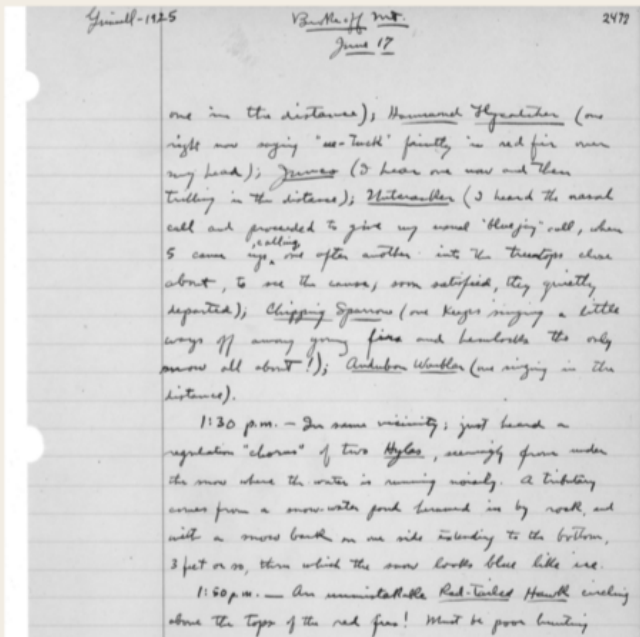 Grinnell-1925 Brokeoff Mt. 2477
June 17
one in the distance); Hammond Flycatcher (one
right now singing "se-tuck" faintly in red fir over
my head); Junco (I hear one now and then
trilling in the distance); Nutcracker (I heard the nasal
call and proceeded to give my usual "bluejay" call, when
5 came up, calling, one after another into the treetops close
about, to see the cause; soon satisfied, they quietly
departed); Chipping Sparrow (one keeps singing a little
ways off among young firs and hemlocks the only
snow all about!); Audubon Warbler (one singing in the
distance).
1:30 p.m. — In same vicinity; just heard a
regulation "chorus" of two Hylas, seemingly from under
the snow where the water is running noisily. A tributary
comes from a snow-water pond hemmed in by rock, and
with a snow bank on one side extending to the bottom,
3 feet or so, thru which the snow looks blue like ice.
1:50 p.m. — An unmistakable Red-tailed Hawk circling
above the tops of the red firs! Must be poor hunting